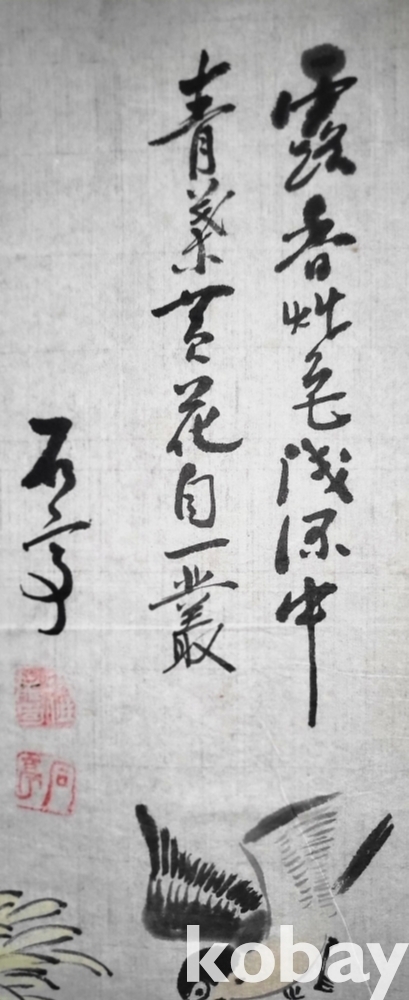 露香色浅深中
青葉黄花自一叢
石亭
kobay